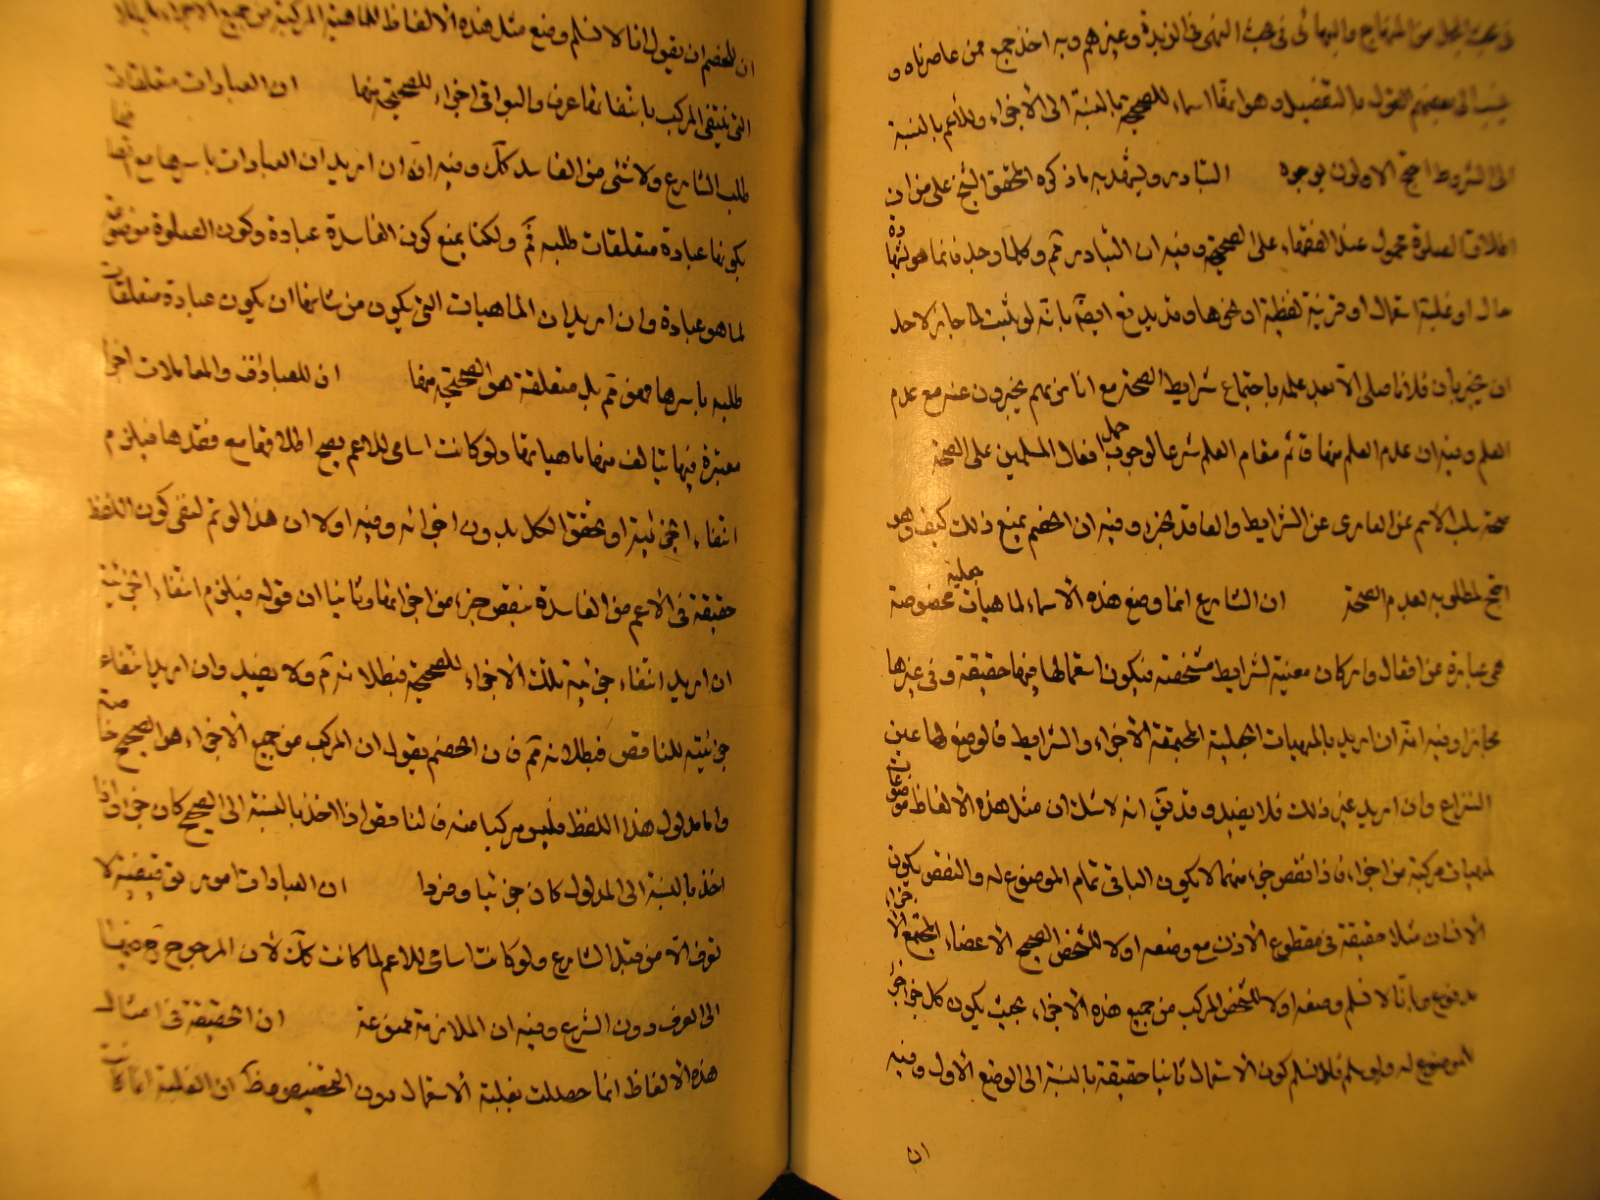 في بحث المجمل من المنهاج والبهائي في بحث النهي في الزبدة وغيرهم وبه اخذ جمع ممن عاصرناه و
ينسب الى بعضهم القول بالتفصيل وهو انها اسماء للصحيحة بالنسبة الى الأجزاء وللأعم بالنسبة
الى الشروط احتج الاولون بوجوه التبادر ويشهد به ما ذكره المحقق الشيخ علي من ان
اطلاق الصلوة محمول عند الفقهاء على الصحيحة وفيه ان التبادر مم وكلما وجد فانما هو لشهادة
حال او غلبة استعمال او قرينة لفظية او نحوها وقد يدفع ايضا بانه لو ثبت لما جاز لاحد
ان يخبر بان فلانا صلى الا بعد علمه باجتماع شرايط الصحة مع انا نريهم يخبرون عنه مع عدم
العلم وفيه ان عدم العلم منها قائم مقام العلم شرعا لوجوب حمل افعال المسلمين على الصحة
صحة سلب الاسم عن العاري عن الشرايط والفاقد لجزء وفيه ان الخصم يمنع ذلك كيف وهو
احتج لمطلوبه بعدم الصحة ان الشارع انما وضع هذه الأسماء لماهيات جعلية مخصوصة
هي عبارة عن افعال واركان معينة لشرايط مشخصة فيكون استعمالها فيها حقيقة وفي غيرها
مجازا وفيه انه ان اريد بالمهيات الجعلية المجتمعة الأجزاء والشرايط فالوضع لها عين
النزاع وان اريد غير ذلك فلا يفيد وقد يق انه لا شك ان مثل هذه الألفاظ موضوعات
لمهيات مركبة من اجزاء فاذا نقص جزء منها لا يكون الباقي تمام الموضوع له والنقص بكون
الانسان مثلا حقيقة في مقطوع الأذن مع وضعه اولا للشخص الصحيح الأعضاء المجتمع الأجزاء
مدفوع بانا لا نسلم وضعه اولا للشخص المركب من جميع هذه الأجزاء بحيث يكون كل جزء جزء
الموضوع له ولو سلم فلا نسلم كون الاستعمال ثانيا حقيقة بالنسبة الى الوضع الأول وفيه
ان
ان للخصم ان يقول انا لا نسلم وضع مثل هذه الألفاظ للماهية المركبة من جميع الأجزاء
التي ينتفي المركب بانتفائها عرفا والبواقي اجزاء للصحيحة منها ان العبادات متعلقات
طلب الشارع ولا شئ من الفاسد كك وفيه انه ان اريد ان العبادات باسرها مع اتصافها
بكونها عبادة متعلقات طلبه ثم ولكنا نمنع كون الفاسدة عبادة وكون الصلوة موضوعة
لما هو عبادة وان اريد ان الماهيات التي يكون من شانها ان يكون عبادة متعلقات
طلبه باسرها فهو مم بل متعلقة هو الصحيحة منها ان للعبادات والمعاملات اجزاء
معتبرة فيها يتالف منها ماهياتها ولو كانت اسامي للاعم يصح اطلاقها مع فقدها فيلزم
انتفاء الجزئية او تحقق الكل بدون اجزائه وفيه اولا ان هذا لو تم لنفى كون اللفظ
حقيقة في الأعم من الفاسدة بنقص جزء من اجزائها وثانيا ان قوله فيلزم انتفاء الجزئية
ان اريد انتفاء جزئية تلك الأجزاء للصحيحة فبطلانه مم ولا يفيد وان اريد انتفاء
جزئيته للناقص فبطلانه مم فان الخصم يقول ان المركب من جميع الأجزاء هو الصحيح خاصة
واما مدلول هذا اللفظ فليس مركبا منه فالناقص اذا اخذ بالنسبة الى الصحيح كان جزءا واذا
اخذ بالنسبة الى المدلول كان جزئيا وفردا ان العبادات امور توقيفية لا
تعرف الا من قبل الشارع ولو كانت اسامي للاعم لما كانت كك لأن المرجع ح فيها
الى العرف دون الشرع وفيه ان الملازمة ممنوعة ان الحقيقة في امثال
هذه الألفاظ انما حصلت بغلبة الاستعمال دون التخصيص وظ ان الغلبة انما كانت